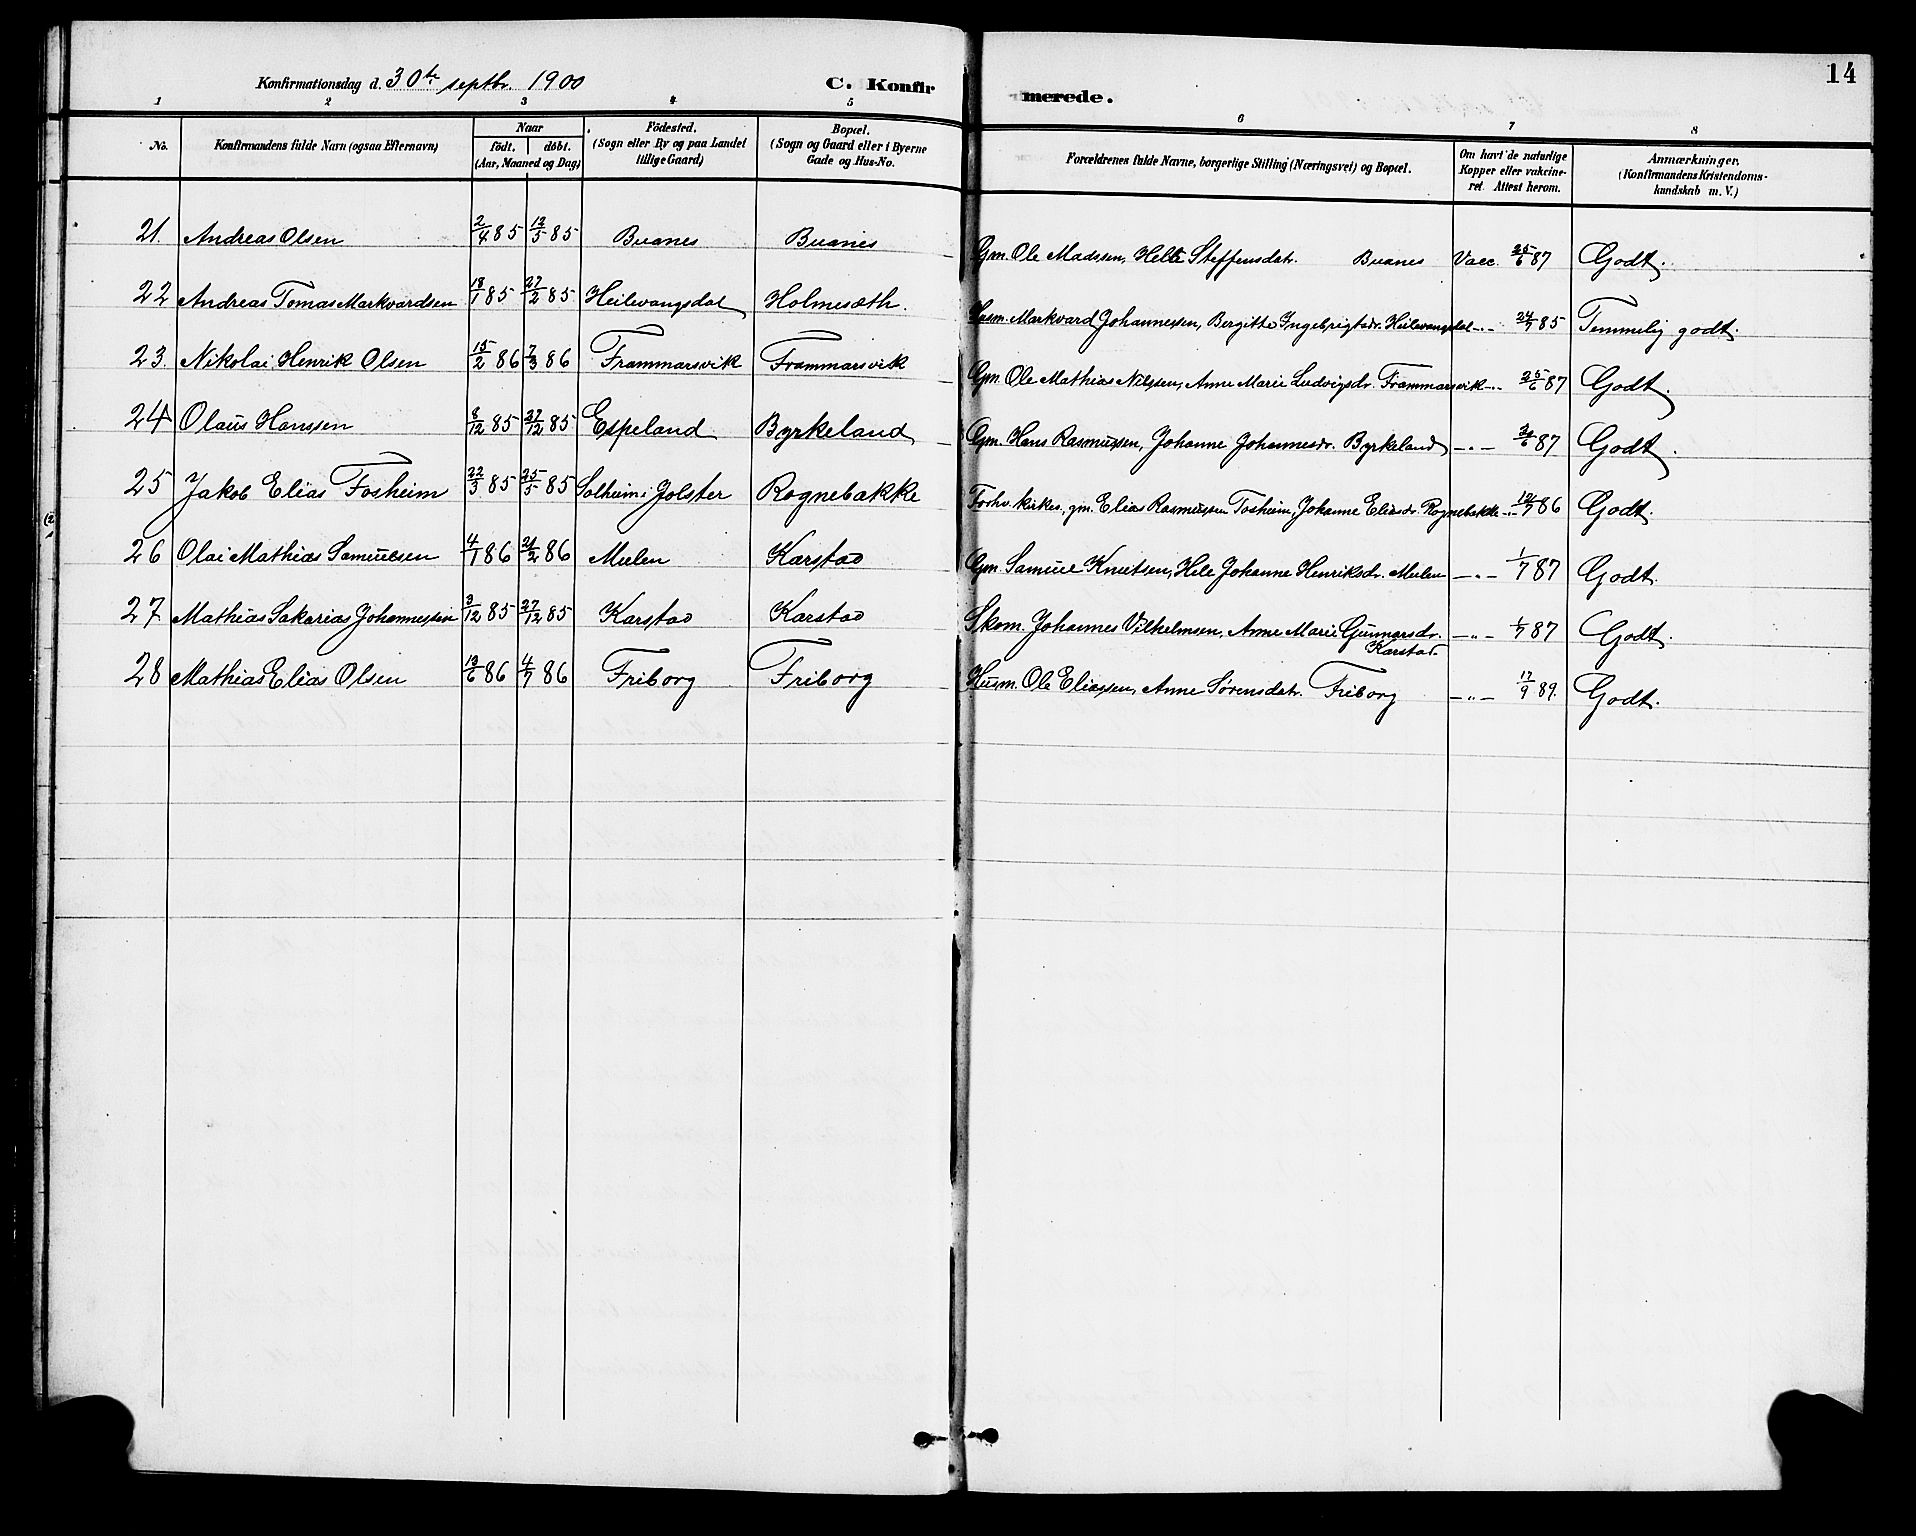 14
Konfirmationsdag d. 30te septbr. 1900 C. Konfirmerede.
1 2 3 4 5 6 7 8
No. Konfirmandens fulde Navn (ogsaa Efternavn) Naar födt. döbt. (Aar, Maaned og Dag) Födested. (Sogn eller By og paa Landet tillige Gaard) Bopæl. (Sogn og Gaard eller i Byerne Gade og Hus-No. Forældrenes fulde Navne, borgerlige Stilling (Næringsvei) og Bopæl. Om havt de naturlige Kopper eller vakcineret. Attest herom. Anmærkninger. (Konfirmandens Kristendomskundskab m. V.)
21. Andreas Olsen 2/4 85 12/5 85 Buanes Buanes Gm. Ole Madssen, Helle Steffensdatr. Buanes Vacc. 25/6 87 Godt.
22 Andreas Tomas Markvardsen 18/1 85 27/2 85 Heilevangsdal Holmesæth. Husm. Markvard Johannessen, Bergitte Ingebrigtsdr. Heilevangsdal -"- 24/7 85 Temmelig godt.
23. Nikolai Henrik Olsen 15/2 86 7/3 86 Frammarsvik Frammarsvik Gm. Ole Mathias Nilssen, Anne Marie Ludvigsdr. Frammarsvik -"- 25/6 87 Godt.
24 Olaus Hanssen 8/12 85 27/12 85 Espeland Byrkeland Gm. Hans Rasmussen, Johanne Johannesdr. Byrkeland -"- 87 Godt.
25 Jakob Elias Fosheim 22/3 85 25/5 85 Solheim i Jolster Rognebakke Forhv. kirkes., gm. Elias Rasmussen Fosheim, Johanne Eliasdr. Rognebakke -"- 12/7 86 Godt.
26 Olai Mathias Samuelsen 4/1 86 21/2 86 Mulen Karstad Gm. Samuel Knutsen, Hele Johanne Henriksdr. Mulen -"- 1/7 87 Godt.
27. Mathias Sakarias Johannessen 3/12 85 27/12 85 Karstad Karstad Skom. Johannes Vilhelmsen, Anne Marie Gunnarsdr. Karstad. -"- 1/7 87 Godt.
28 Mathias Elias Olsen 13/6 86 4/7 86 Friborg Friborg Husm. Ole Eliassen, Anne Sørensdatr. Friborg -"- 17/9 89. Godt.